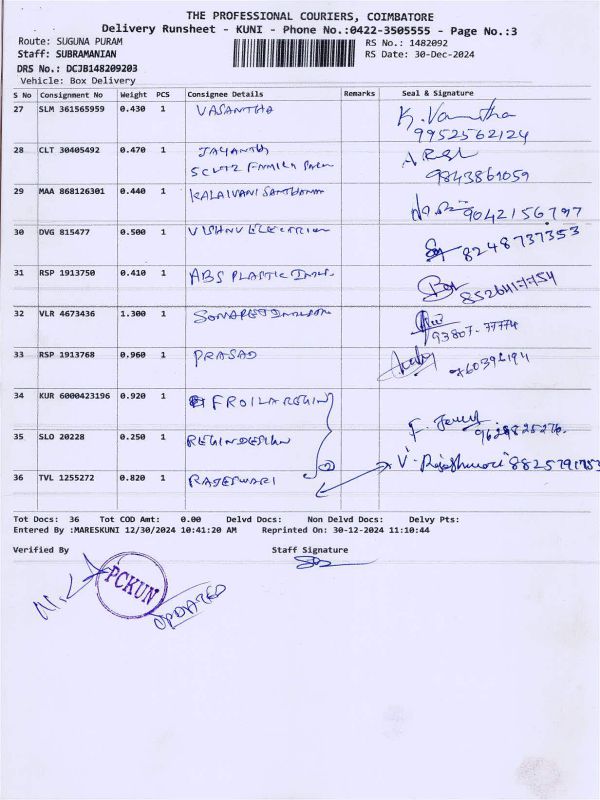 THE PROFESSIONAL COURIERS, COIMBATORE
Delivery Runsheet - KUNI - Phone No.:0422-3505555 - Page No.:3
Route: SUGUNA PURAM
RS No.: 1482092
Staff: SUBRAMANIAN
RS Date: 30-Dec-2024
DRS No.: DCJB148209203
Vehicle: Box Delivery
S No Consignment No Weight PCS Consignee Details Remarks Seal & Signature
27 SLM 361565959 0.430 1 VASANTHA
9952562124
28 CLT 30405492 0.470 1 JAYANTHI
9843861059
29 MAA 868126301 0.440 1 KALAIVANI SANTHANAM
9042156797
30 DVG 815477 0.500 1 VISHNU ELECTRICAL
8248737353
31 RSP 1913750 0.410 1 ABS PLASTIC
32 VLR 4673436 1.300 1
93807-77774
33 RSP 1913768 0.960 1 PRASAD
34 KUR 6000423196 0.920 1
35 SLO 20228 0.250 1 REGIN DESIGN
36 TVL 1255272 0.820 1 RAJESWARI
Tot Docs: 36 Tot COD Amt: 0.00 Delvd Docs: Non Delvd Docs: Delvy Pts:
Entered By :MARESKUNI 12/30/2024 10:41:20 AM Reprinted On: 30-12-2024 11:10:44
Verified By Staff Signature
PCKUN
UPDATED